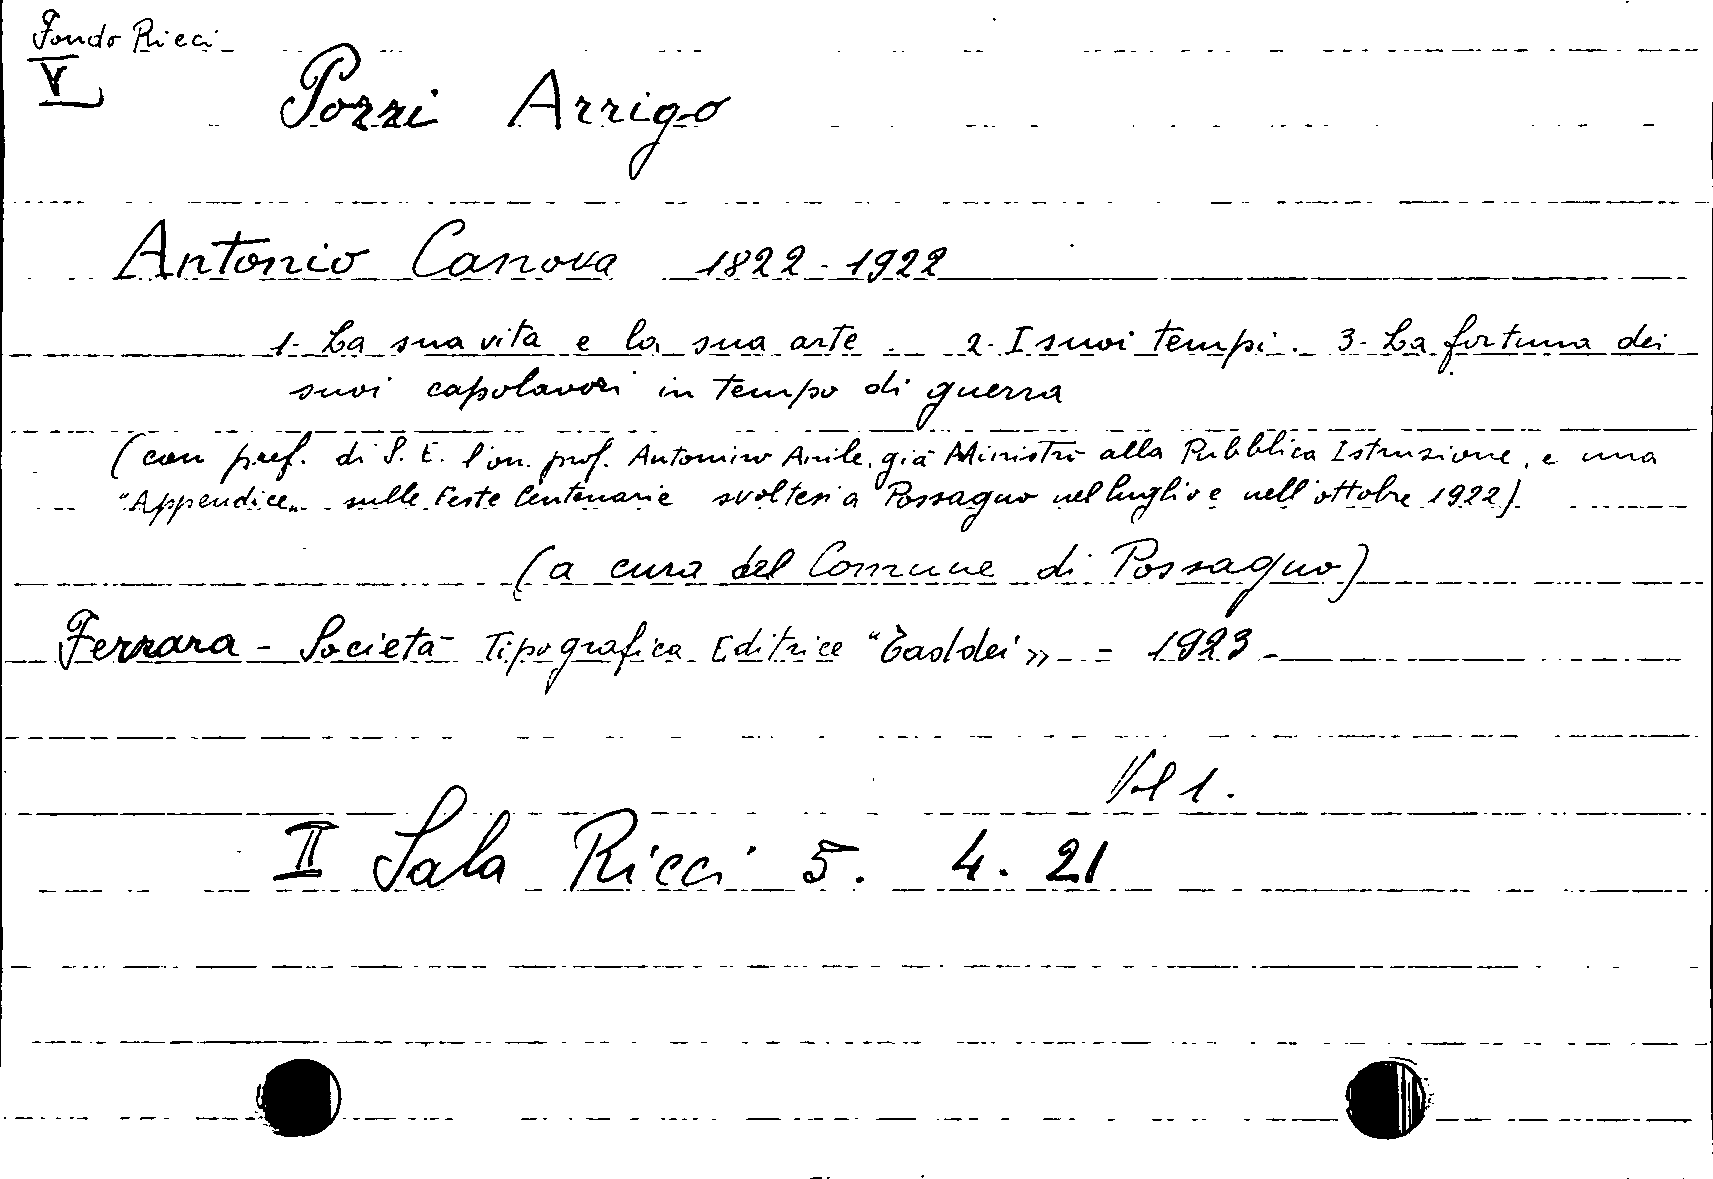 Fondo Ricci
V
Pozzi Arrigo
Antonio Canova 1822-1922
1- La sua vita e la sua arte. 2- I suoi tempi. 3- La fortuna dei
suoi capolavori in tempo di guerra
(con pref. di S. E. l'on. prof. Antonino Anile, già Ministro alla Pubblica Istruzione, e una
"Appendice" sulle Feste Centenarie svoltesi a Possagno nel luglio e nell'ottobre 1922)
(a cura del Comune di Possagno)
Ferrara - Società Tipografica Editrice "Taddei" - 1923 -
Vol 1.
II Sala Ricci 5. 4. 21